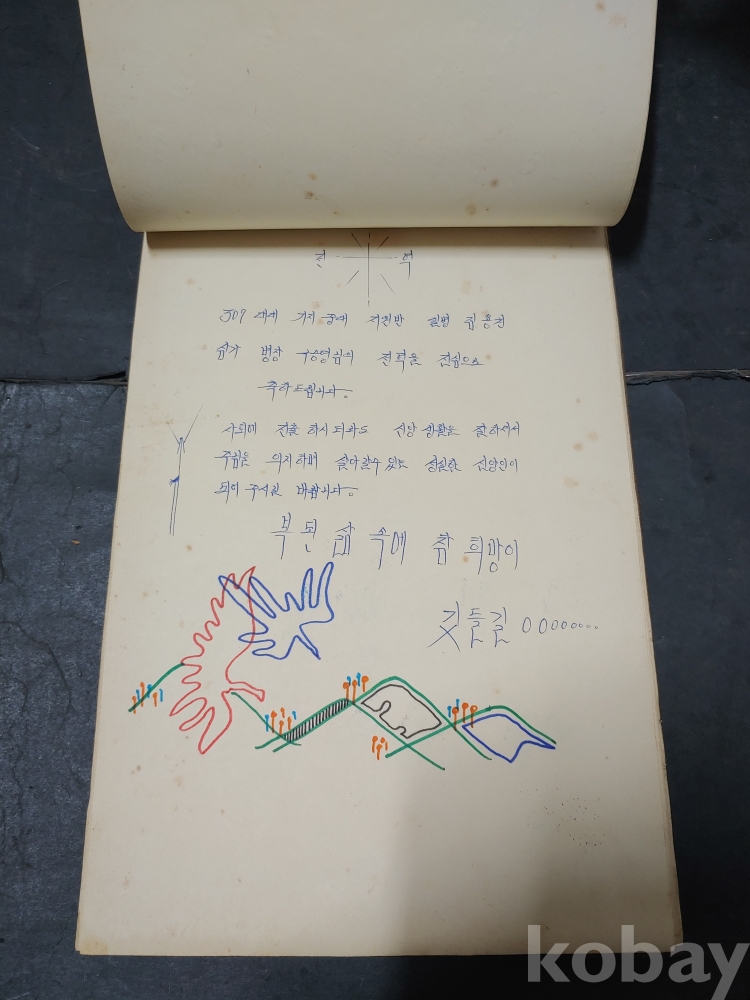 전 역
509 대대 기지 중대 지원반 일병 김용진
이가 병장 구승영님의 전역을 진심으로
축하드립니다.
사회에 진출 하시더라도 신앙 생활을 잘하셔서
주님을 의지하며 살아갈수 있는 성실한 신앙인이
되어 주시길 바랍니다.
복된 삶 속에 참 희망이
깃들길 00000000...
kobay